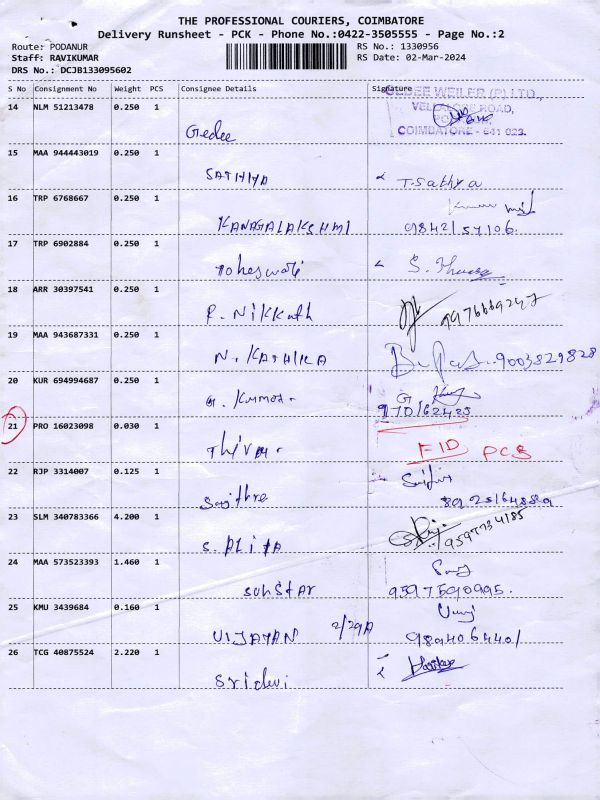 THE PROFESSIONAL COURIERS, COIMBATORE
Delivery Runsheet - PCK - Phone No.:0422-3505555 - Page No.:2
Route: PODANUR
RS No.: 1330956
Staff: RAVIKUMAR
RS Date: 02-Mar-2024
DRS No.: DCJB133095602
S No Consignment No Weight PCS Consignee Details Signature
GEDEE WEILER (P) LTD.,
14 NLM 51213478 0.250 1
COIMBATORE - 641 023.
Gedee
15 MAA 944443019 0.250 1
SATHIYA T. Sathya
16 TRP 6768667 0.250 1
KANAGALAKSHMI 9842157106.
17 TRP 6902884 0.250 1
18 ARR 30397541 0.250 1
R. Nikkath 9976669247
19 MAA 943687331 0.250 1
N. KATHIKA 9003829828
20 KUR 694994687 0.250 1
G. Kumar. G.
970162425
21 PRO 16023098 0.030 1
FID PCS
22 RJP 3314007 0.125 1
23 SLM 340783366 4.200 1
9597734185
24 MAA 573523393 1.460 1
SUNSTAR 9597590995.
25 KMU 3439684 0.160 1
VIJAYAN 2/29A 9894064401
26 TCG 40875524 2.220 1
Sridevi